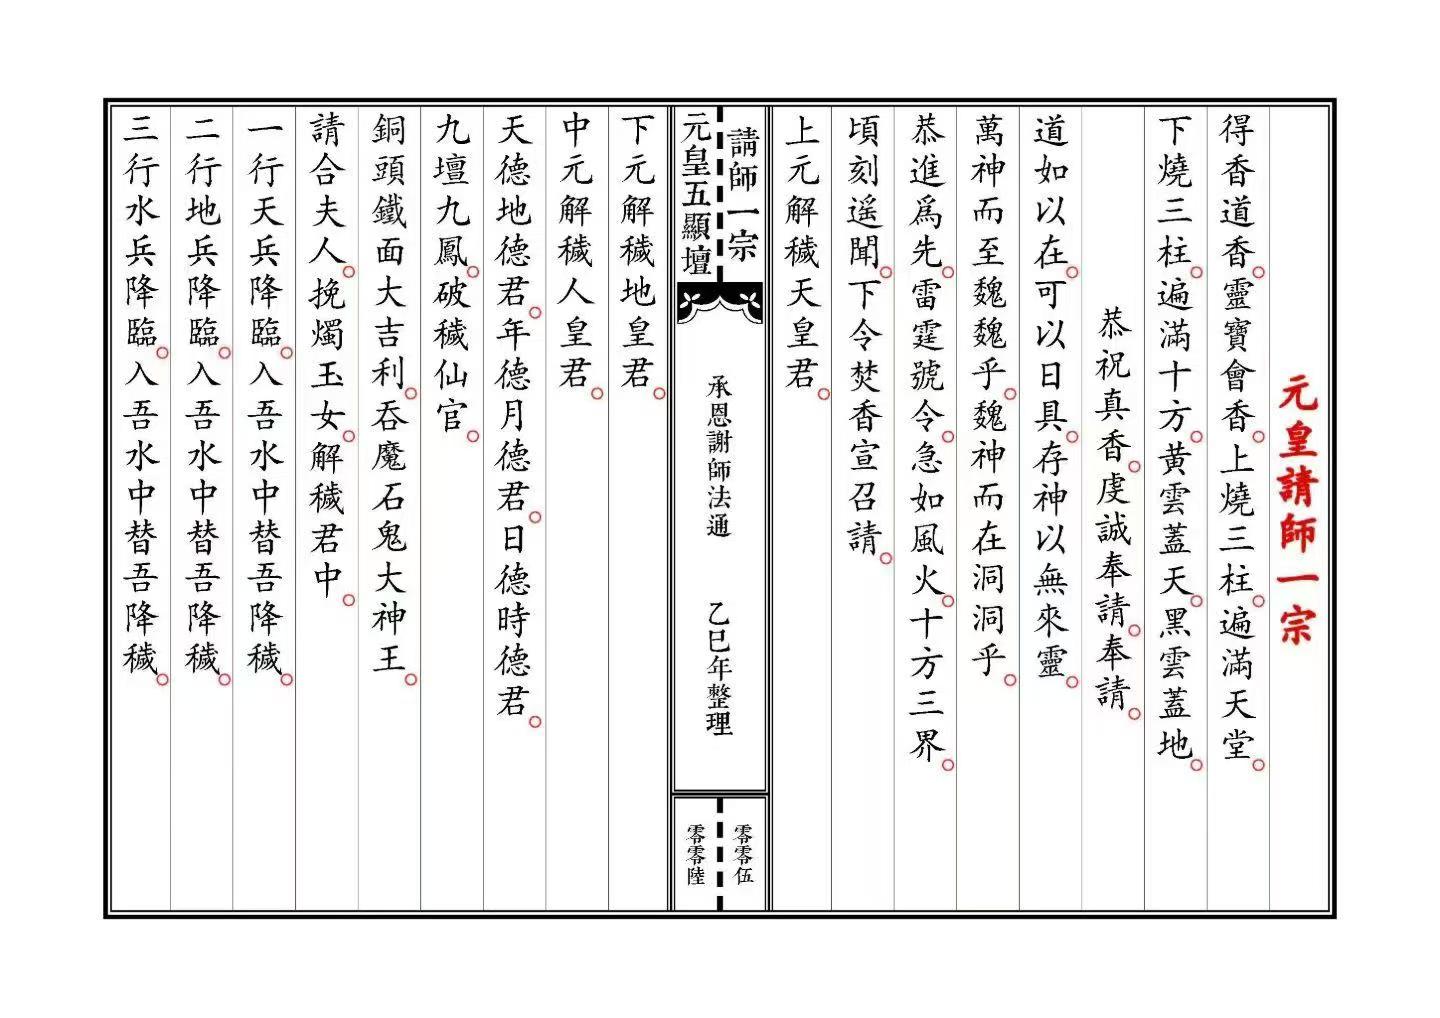 元皇請師一宗
得香道香。靈寶會香。上燒三柱。遍滿天堂。
下燒三柱。遍滿十方。黃雲蓋天。黑雲蓋地。
恭祝真香。虔誠奉請。奉請。
道如以在。可以日具。存神以無來靈。
萬神而至魏魏乎。魏神而在洞洞乎。
恭進爲先。雷霆號令。急如風火。十方三界。
頃刻遥聞。下令焚香宣召請。
上元解穢天皇君。
請師一宗
元皇五顯壇
承恩謝師法通
乙巳年整理
零零伍
零零陸
下元解穢地皇君。
中元解穢人皇君。
天德地德君。年德月德君。日德時德君。
九壇九鳳。破穢仙官。
銅頭鐵面大吉利。吞魔石鬼大神王。
請合夫人。挽燭玉女。解穢君中。
一行天兵降臨。入吾水中替吾降穢。
二行地兵降臨。入吾水中替吾降穢。
三行水兵降臨。入吾水中替吾降穢。